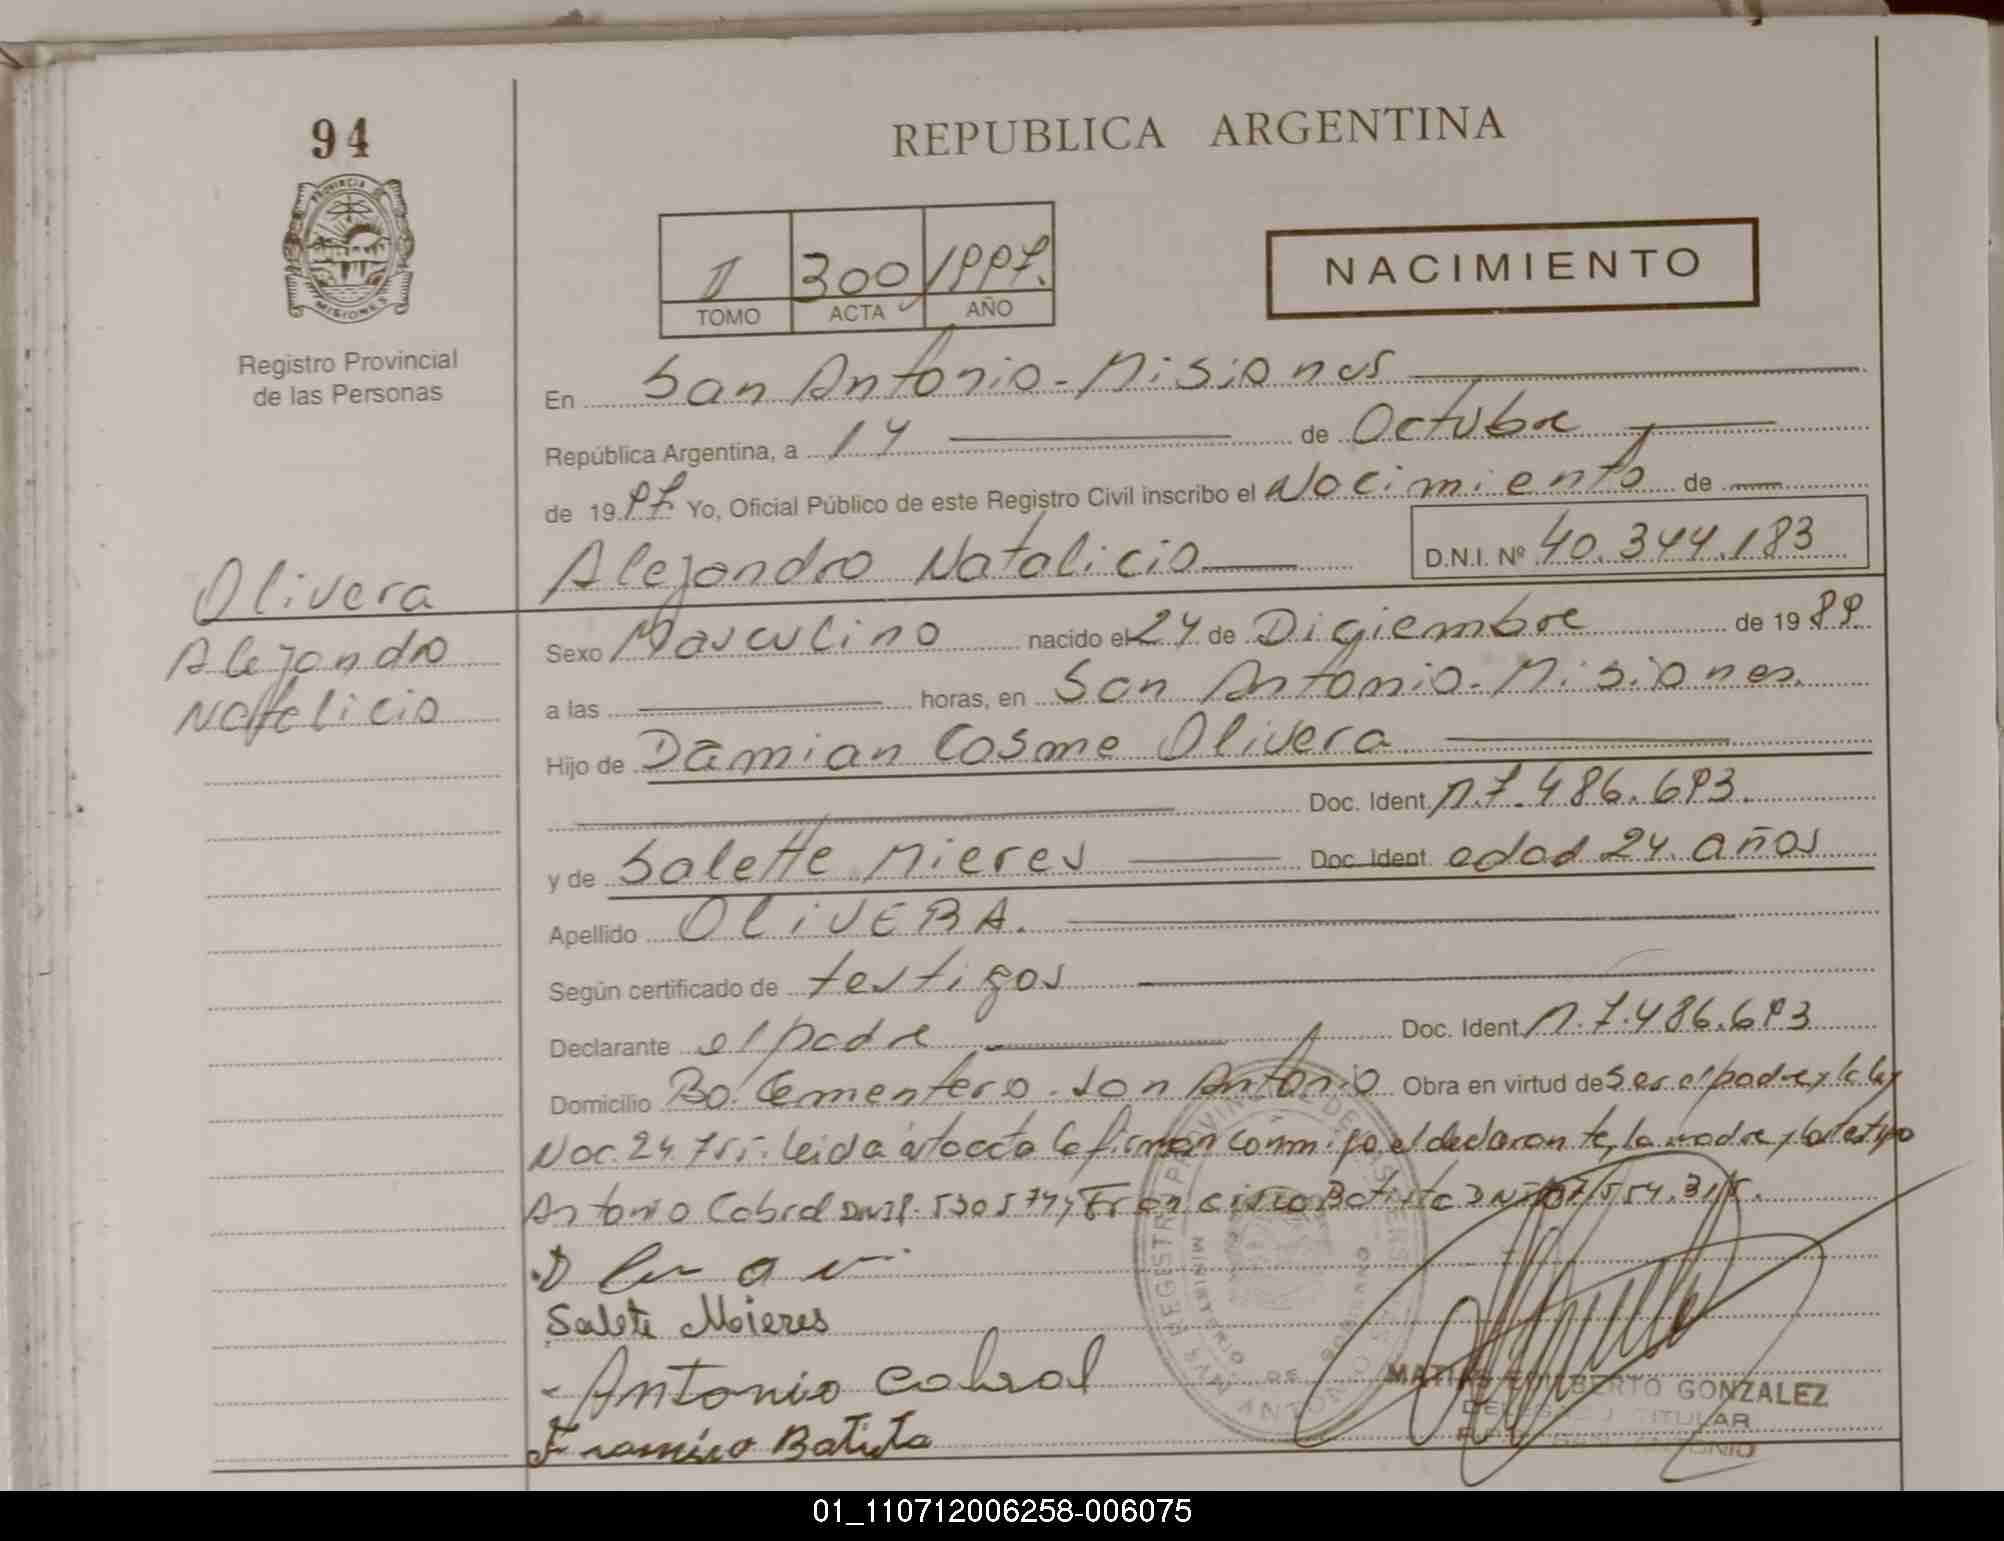 94
REPUBLICA ARGENTINA
II 300 1997.
TOMO ACTA AÑO
NACIMIENTO
Registro Provincial
de las Personas
En San Antonio - Misiones
República Argentina, a 14 de Octubre
de 1997 Yo, Oficial Público de este Registro Civil inscribo el Nacimiento de
Alejandro Natalicio D.N.I. Nº 40.344.183
Olivera
Alejandro
Natalicio
Sexo Masculino nacido el 24 de Digiembre de 1989
a las horas, en San Antonio - Misiones.
Hijo de Damian Cosme Olivera
Doc. Ident. N. 7.486.693.
y de Salette Mieres Doc. Ident. edad 24 años
Apellido OLiVERA.
Según certificado de testigos
Declarante el padre Doc. Ident. N. 7.486.693
Domicilio Bo. Cementero - San Antonio Obra en virtud de Ser el padre y la ley
Nac. 24.755 - leida la firman conmigo el declarante, la madre y
Antonio Cabral Francisco Batista
Salete Moieres
- Antonio Cabral
Batista
REGISTRO PROVINCIAL DE LAS PERSONAS
MINISTERIO DE GOBIERNO
SAN ANTONIO
GONZALEZ
TITULAR
01_110712006258-006075